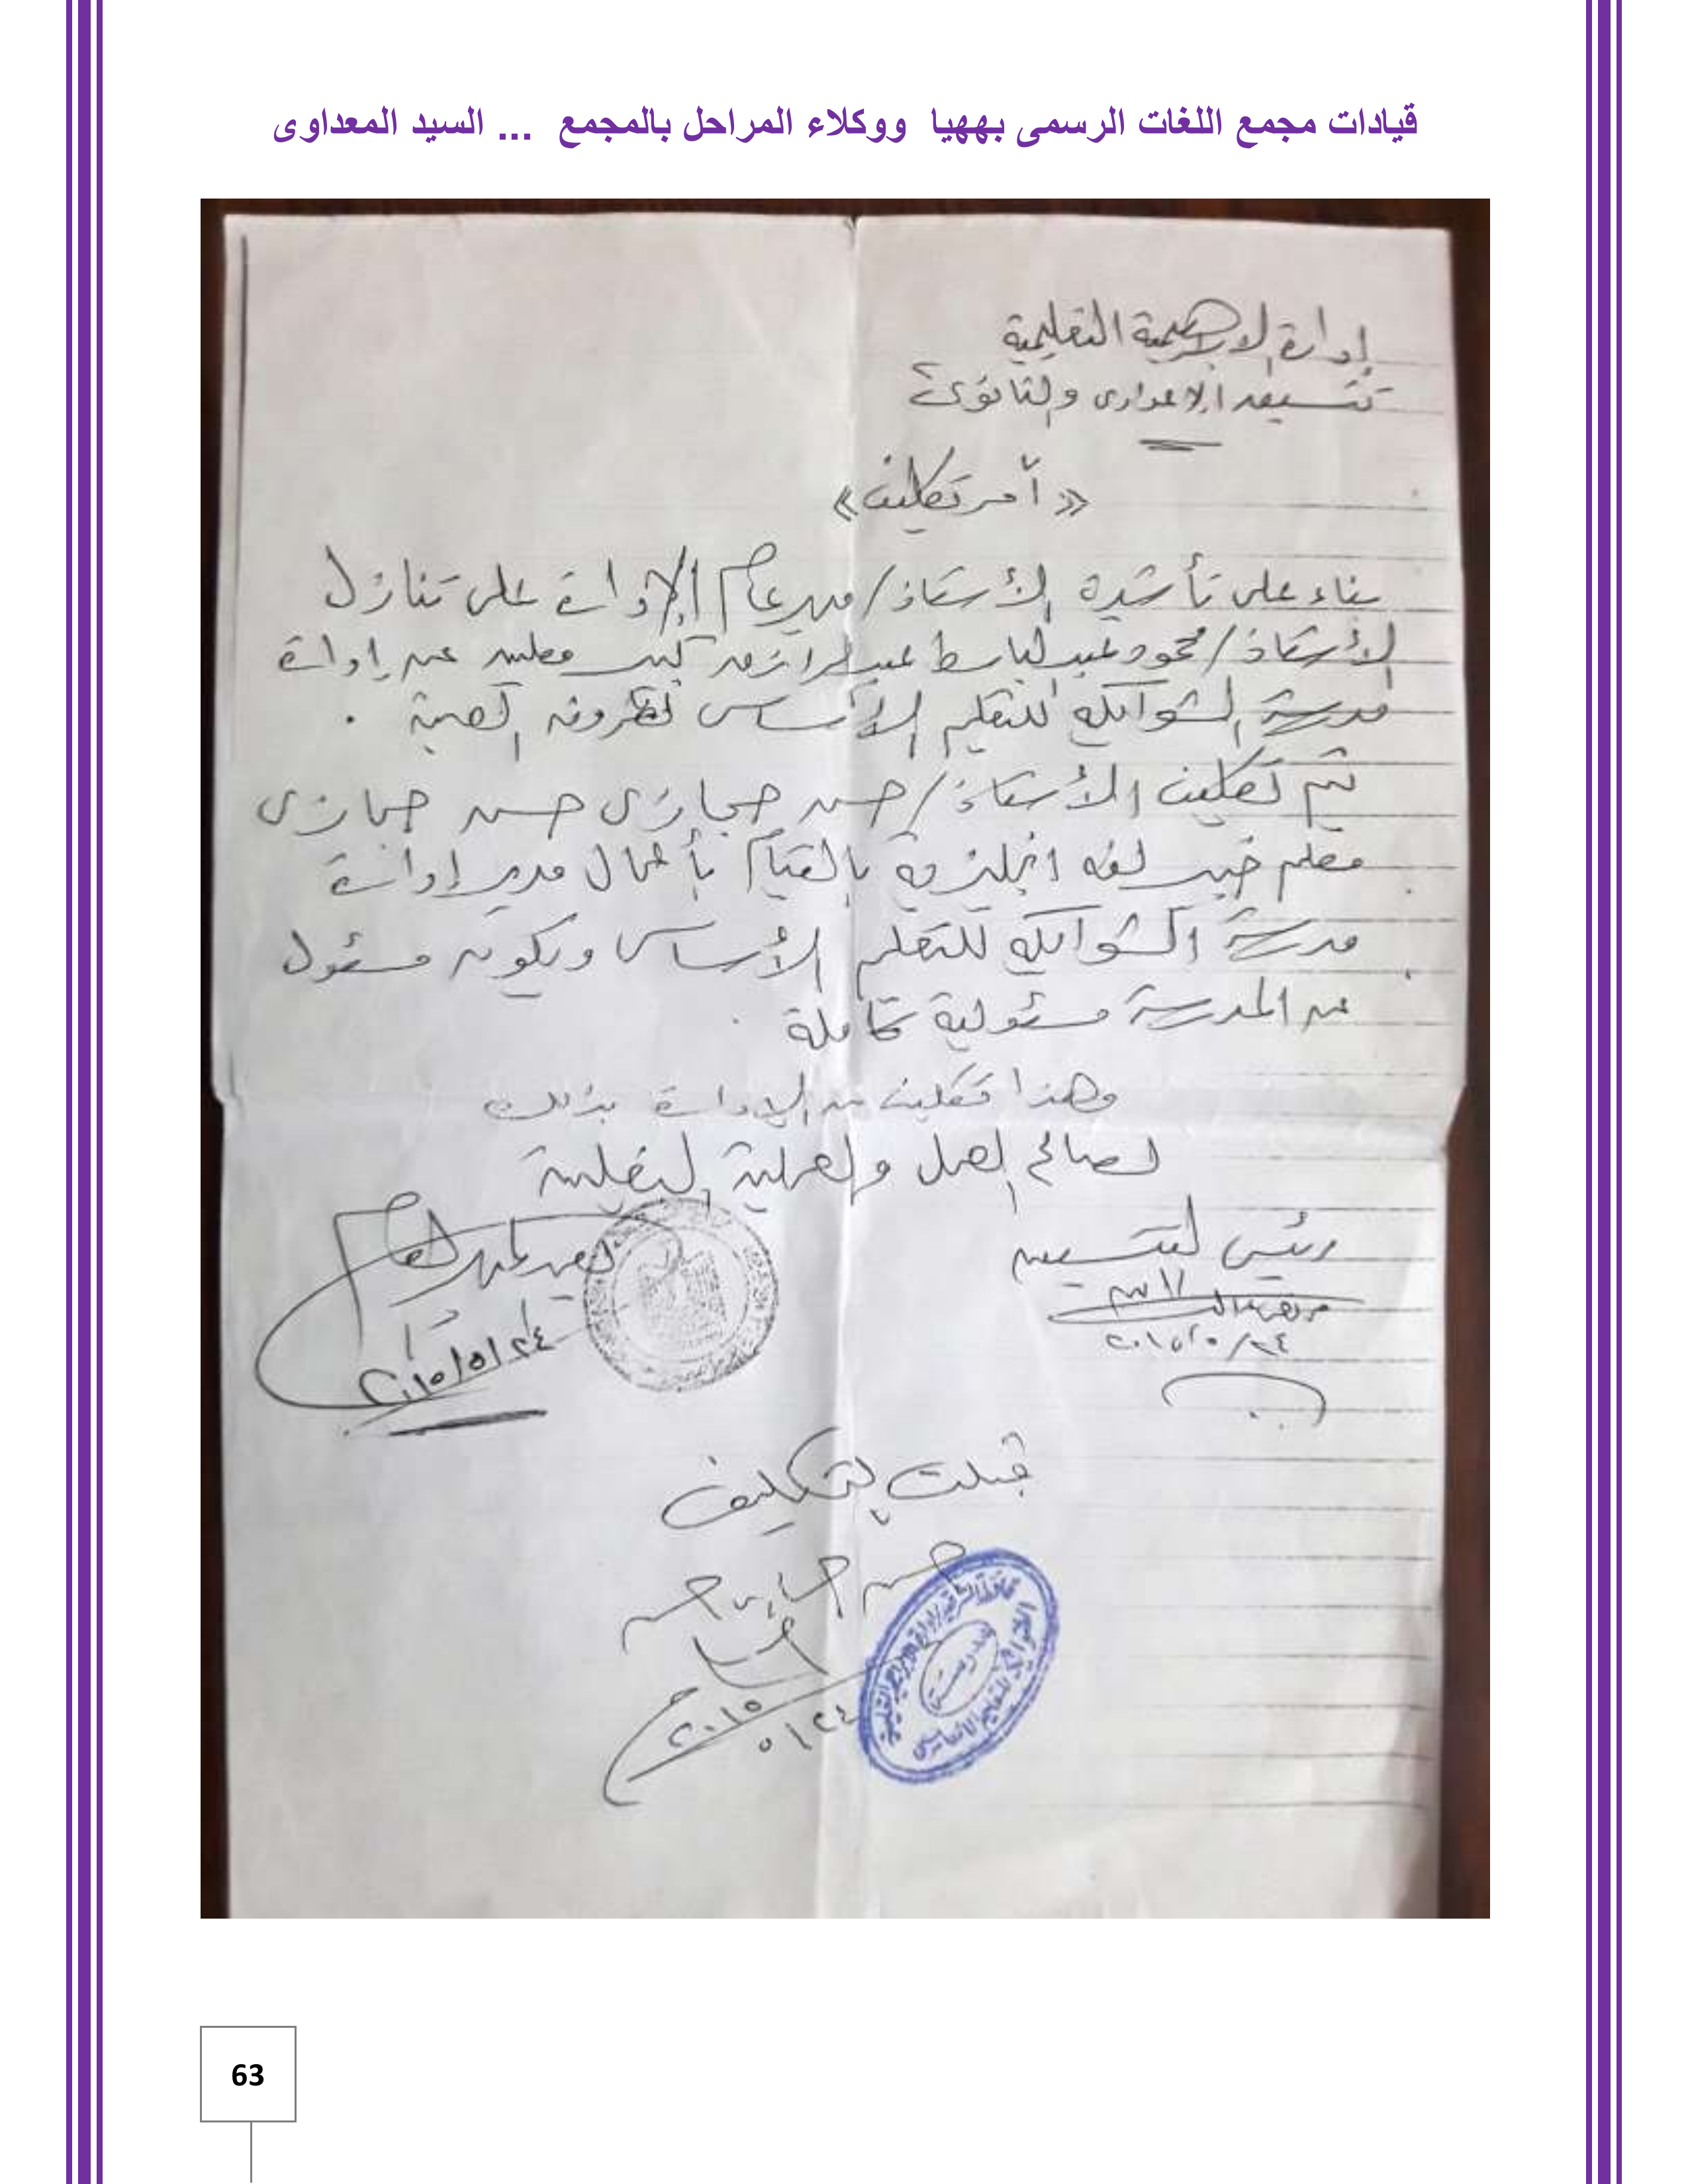 قيادات مجمع اللغات الرسمى بههيا ووكلاء المراحل بالمجمع ... السيد المعداوى
إدارة الابراهيمية التعليمية
تنسيق الاعدادى والثانوى
«أمر تكليف»
بناء على تأشيرة الأستاذ/ مدير عام الإدارة على تنازل
الأستاذ/ محمود عبد الباسط عبد الرازق كبير معلمين عن إدارة
مدرسة الشوابكة للتعليم الأساسى لظروفه الصحية .
تم تكليف الأستاذ/ حسن حجازى حسن حجازى
معلم خبير لغه انجليزية بالقيام بأعمال مدير إدارة
مدرسة الشوابكة للتعليم الأساسى ويكون مسئول
عن المدرسة مسئولية كاملة .
وهذا تكليف من الإدارة بذلك
لصالح العمل والعملية التعليمية
رئيس التنسيق
٢٠١٥/٥/٢٤
المدير العام
٢٠١٥/٥/٢٤
قبلت التكليف
حسن حجازى حسن
٢٠١٥
٥/٢٤
مدرسة
الشوابكة للتعليم الأساسى
63